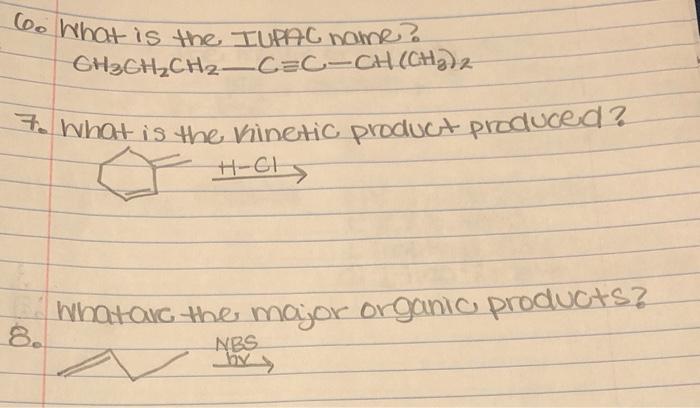 6. What is the IUPAC name?
CH3CH2CH2—C≡C—CH(CH3)2
7. What is the kinetic product produced?
H-Cl
What are the major organic products?
8.
NBS
hv